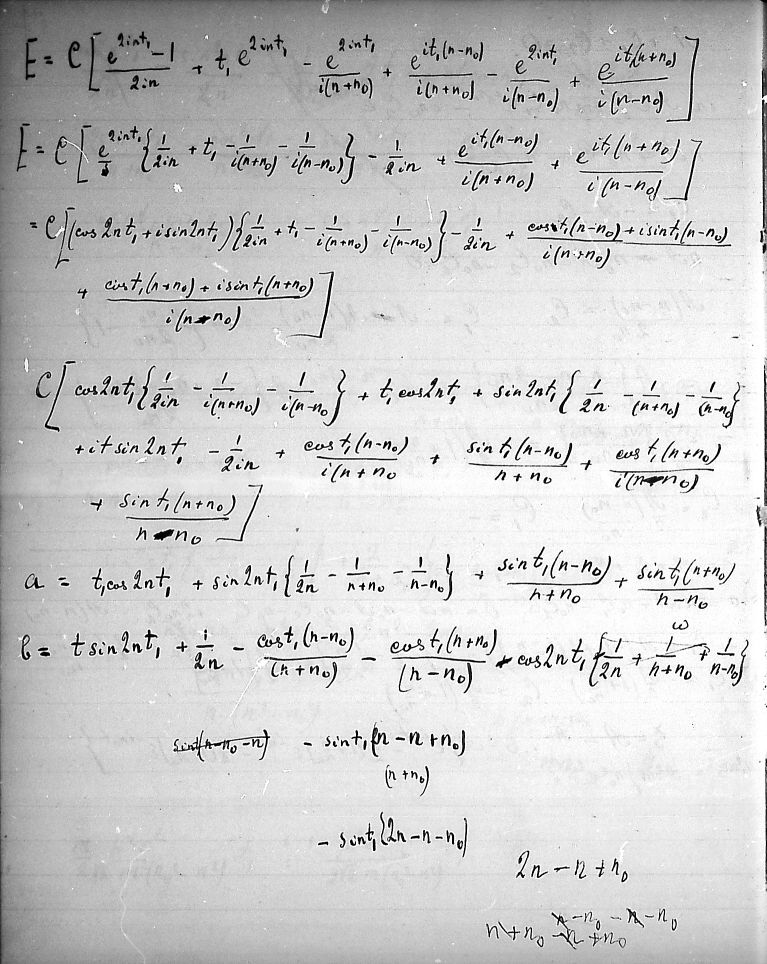 E = C [ (e^{2int₁} - 1)/2in + t₁ e^{2int₁} - e^{2int₁}/i(n+n₀) + e^{it₁(n-n₀)}/i(n+n₀) - e^{2int₁}/i(n-n₀) + e^{it₁(n+n₀)}/i(n-n₀) ]
E = C [ e^{2int₁} { 1/2in + t₁ - 1/i(n+n₀) - 1/i(n-n₀) } - 1/2in + e^{it₁(n-n₀)}/i(n+n₀) + e^{it₁(n+n₀)}/i(n-n₀) ]
= C [ (cos 2nt₁ + i sin 2nt₁) { 1/2in + t₁ - 1/i(n+n₀) - 1/i(n-n₀) } - 1/2in + (cos t₁(n-n₀) + i sin t₁(n-n₀))/i(n+n₀)
+ (cos t₁(n+n₀) + i sin t₁(n+n₀))/i(n-n₀) ]
C [ cos 2nt₁ { 1/2in - 1/i(n+n₀) - 1/i(n-n₀ } + t₁ cos 2nt₁ + sin 2nt₁ { 1/2n - 1/(n+n₀) - 1/(n-n₀) }
+ it sin 2nt₁ - 1/2in + cos t₁(n-n₀)/i(n+n₀ + sin t₁(n-n₀)/n+n₀ + cos t₁(n+n₀)/i(n-n₀)
+ sin t₁(n+n₀)/n-n₀ ]
a = t₁ cos 2nt₁ + sin 2nt₁ { 1/2n - 1/n+n₀ - 1/n-n₀ } + sin t₁(n-n₀)/n+n₀ + sin t₁(n+n₀)/n-n₀
ω
b = t sin 2nt₁ + 1/2n - cos t₁(n-n₀)/(n+n₀) - cos t₁(n+n₀)/(n-n₀) + cos 2nt₁ { 1/2n + 1/n+n₀ + 1/n-n₀ }
sint(n-n₀-n) - sin t₁(n-n+n₀)
(n+n₀)
- sin t₁{2n-n-n₀)
2n-n+n₀
n-n₀-n-n₀
n+n₀-n+n₀